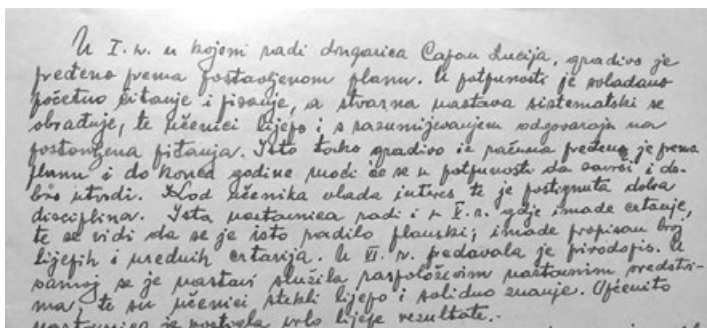 U I. r. u kojem radi drugarica Capan Lucija, gradivo je
pređeno prema postavljenom planu. U potpunosti je svladano
početno čitanje i pisanje, a stvarna nastava sistematski se
obrađuje, te učenici lijepo i s razumijevanjem odgovaraju na
postavljena pitanja. Isto tako gradivo iz računa pređeno je prema
planu i do konca godine moći će se u potpunosti da završi i do-
bro utvrdi. Kod učenika vlada interes te je postignuta dobra
disciplina. Ista nastavnica radi i u V.a. gdje imade crtanje,
te se vidi da se je isto radilo planski; imade propisan broj
lijepih i urednih crtarija. U VI. r. predavala je prirodopis. U
samoj se je nastavi služila raspoloživim nastavnim sredstvi-
ma, te su učenici stekli lijepo i solidno znanje. Općenito
nastavnica je postigla vrlo lijepe rezultate.-